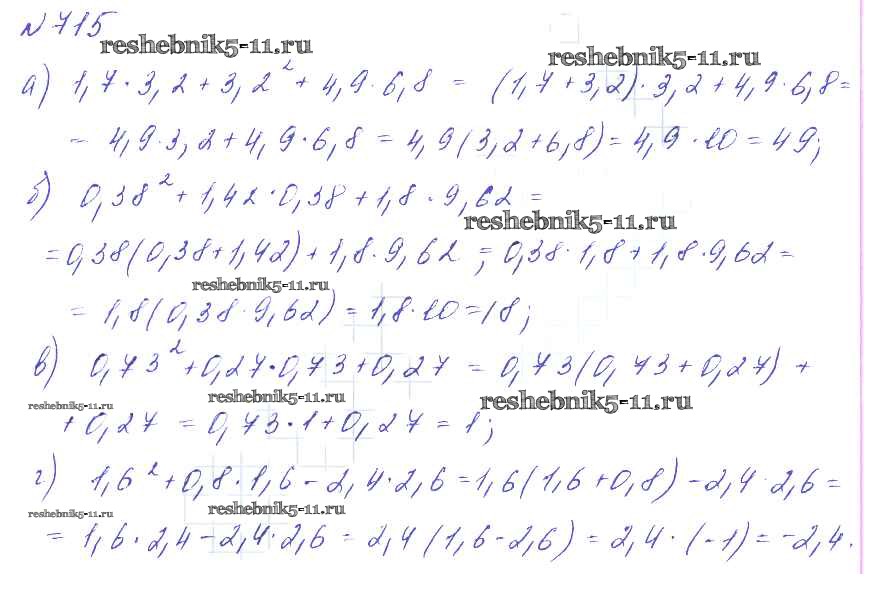 № 715
reshebnik5-11.ru
reshebnik5-11.ru
а) 1,7 · 3,2 + 3,2² + 4,9 · 6,8 = (1,7 + 3,2) · 3,2 + 4,9 · 6,8 =
= 4,9 · 3,2 + 4,9 · 6,8 = 4,9 (3,2 + 6,8) = 4,9 · 10 = 49;
б) 0,38² + 1,42 · 0,38 + 1,8 · 9,62 =
reshebnik5-11.ru
= 0,38 (0,38 + 1,42) + 1,8 · 9,62 = 0,38 · 1,8 + 1,8 · 9,62 =
reshebnik5-11.ru
= 1,8 (0,38 · 9,62) = 1,8 · 10 = 18;
в) 0,73² + 0,27 · 0,73 + 0,27 = 0,73 (0,73 + 0,27) +
reshebnik5-11.ru
reshebnik5-11.ru
reshebnik5-11.ru
+ 0,27 = 0,73 · 1 + 0,27 = 1;
г) 1,6² + 0,8 · 1,6 - 2,4 · 2,6 = 1,6 (1,6 + 0,8) - 2,4 · 2,6 =
reshebnik5-11.ru
reshebnik5-11.ru
= 1,6 · 2,4 - 2,4 · 2,6 = 2,4 (1,6 - 2,6) = 2,4 · (-1) = -2,4.